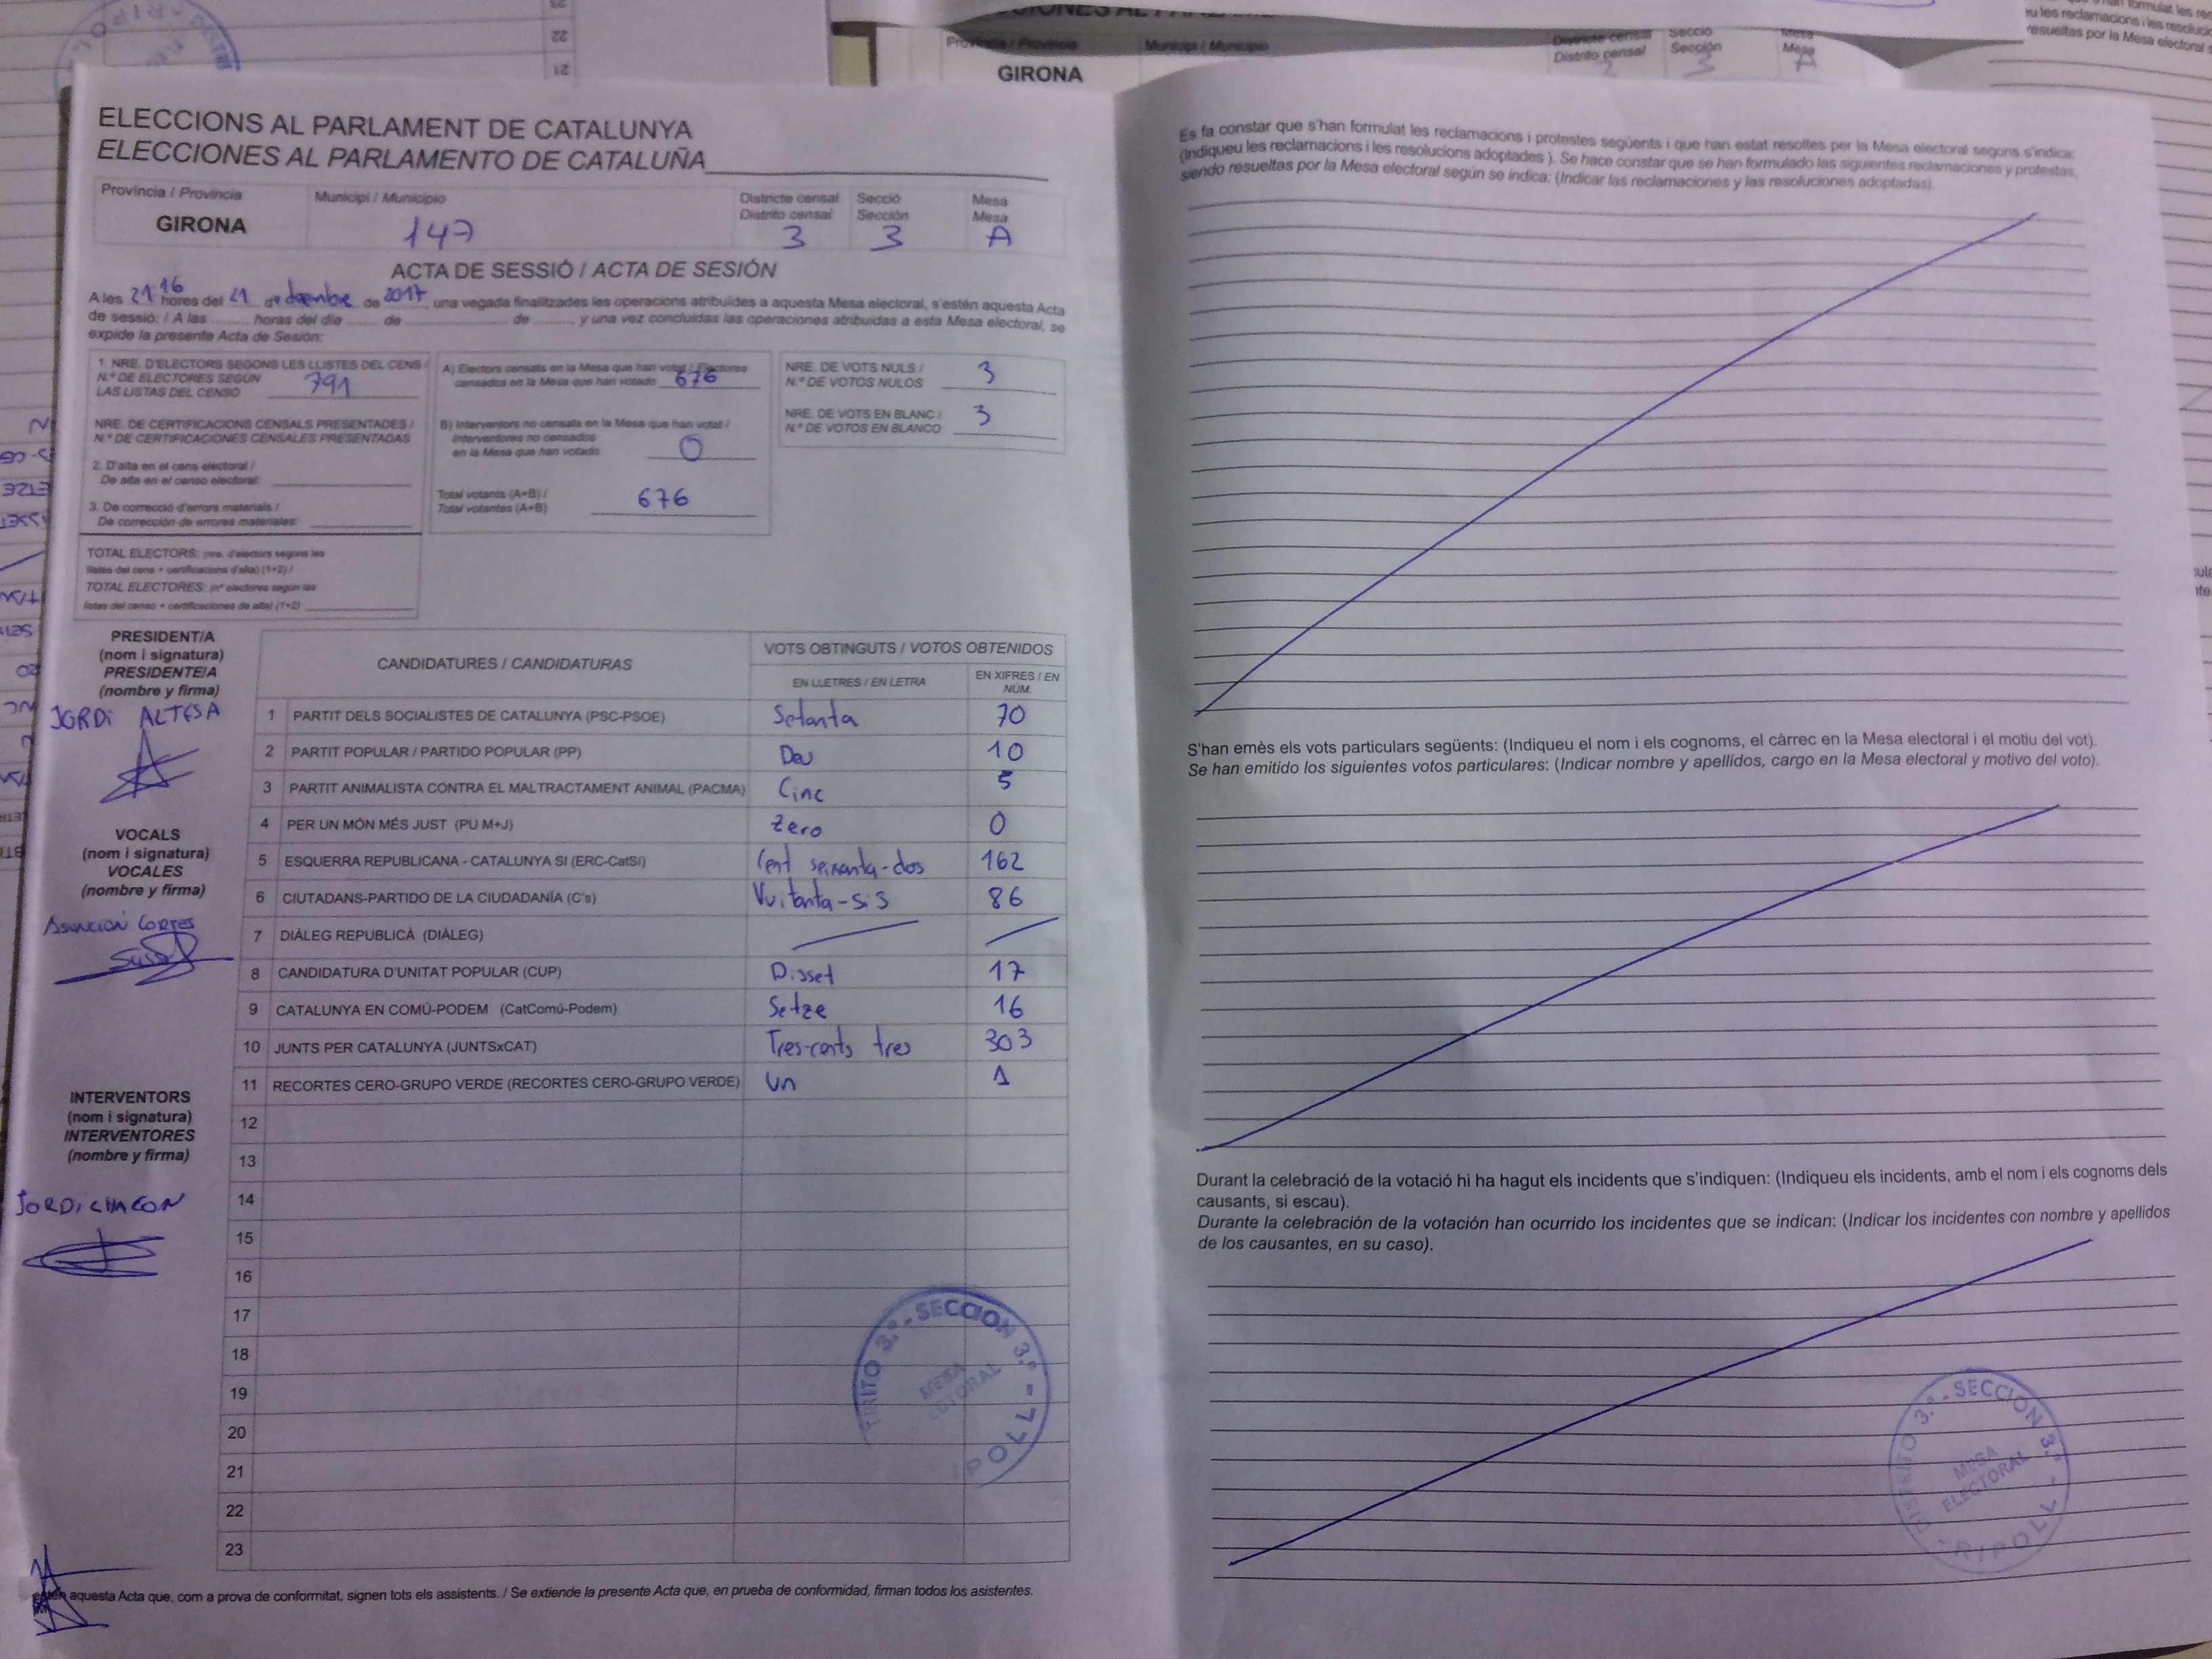 GIRONA
ELECCIONS AL PARLAMENT DE CATALUNYA
ELECCIONES AL PARLAMENTO DE CATALUÑA
Província / Provincia
GIRONA
Municipi / Municipio
147
Districte censal
Distrito censal
3
Secció
Sección
3
Mesa
Mesa
A
ACTA DE SESSIÓ / ACTA DE SESIÓN
A les 21:16 hores del 21 de desembre de 2017, una vegada finalitzades les operacions atribuïdes a aquesta Mesa electoral, s'estén aquesta Acta
de sessió: / A las ........ horas del día ...... de .................... de ........, y una vez concluidas las operaciones atribuidas a esta Mesa electoral, se
expide la presente Acta de Sesión:
1. NRE. D'ELECTORS SEGONS LES LLISTES DEL CENS /
N.º DE ELECTORES SEGÚN
LAS LISTAS DEL CENSO 791
NRE. DE CERTIFICACIONS CENSALS PRESENTADES /
N.º DE CERTIFICACIONES CENSALES PRESENTADAS
2. D'alta en el cens electoral /
De alta en el censo electoral:
3. De correcció d'errors materials /
De corrección de errores materiales:
TOTAL ELECTORS: (nre. d'electors segons les
llistes del cens + certificacions d'alta) (1+2) /
TOTAL ELECTORES: (nº electores según las
listas del censo + certificaciones de alta) (1+2)
A) Electors censats en la Mesa que han votat / Electores
censados en la Mesa que han votado 676
B) Interventors no censats en la Mesa que han votat /
Interventores no censados
en la Mesa que han votado 0
Total votants (A+B) /
Total votantes (A+B) 676
NRE. DE VOTS NULS /
N.º DE VOTOS NULOS 3
NRE. DE VOTS EN BLANC /
N.º DE VOTOS EN BLANCO 3
PRESIDENT/A
(nom i signatura)
PRESIDENTE/A
(nombre y firma)
JORDI ALTESA
VOCALS
(nom i signatura)
VOCALES
(nombre y firma)
ASUNCIÓN CORTES
INTERVENTORS
(nom i signatura)
INTERVENTORES
(nombre y firma)
JORDI CHACON
CANDIDATURES / CANDIDATURAS
VOTS OBTINGUTS / VOTOS OBTENIDOS
EN LLETRES / EN LETRA
EN XIFRES / EN NÚM.
1 PARTIT DELS SOCIALISTES DE CATALUNYA (PSC-PSOE) Setanta 70
2 PARTIT POPULAR / PARTIDO POPULAR (PP) Deu 10
3 PARTIT ANIMALISTA CONTRA EL MALTRACTAMENT ANIMAL (PACMA) Cinc 5
4 PER UN MÓN MÉS JUST (PU M+J) Zero 0
5 ESQUERRA REPUBLICANA - CATALUNYA SI (ERC-CatSí) Cent seixanta-dos 162
6 CIUTADANS-PARTIDO DE LA CIUDADANÍA (C's) Vuitanta-sis 86
7 DIÀLEG REPUBLICÀ (DIÀLEG)
8 CANDIDATURA D'UNITAT POPULAR (CUP) Disset 17
9 CATALUNYA EN COMÚ-PODEM (CatComú-Podem) Setze 16
10 JUNTS PER CATALUNYA (JUNTSxCAT) Tres-cents tres 303
11 RECORTES CERO-GRUPO VERDE (RECORTES CERO-GRUPO VERDE) Un 1
12
13
14
15
16
17
18
19
20
21
22
23
TRITO 3.º - SECCION 3.º - IPOLL
MESA
ECTORAL
aquesta Acta que, com a prova de conformitat, signen tots els assistents. / Se extiende la presente Acta que, en prueba de conformidad, firman todos los asistentes.
Es fa constar que s'han formulat les reclamacions i protestes següents i que han estat resoltes per la Mesa electoral segons s'indica:
(Indiqueu les reclamacions i les resolucions adoptades ). Se hace constar que se han formulado las siguientes reclamaciones y protestas,
siendo resueltas por la Mesa electoral según se indica: (Indicar las reclamaciones y las resoluciones adoptadas).
S'han emès els vots particulars següents: (Indiqueu el nom i els cognoms, el càrrec en la Mesa electoral i el motiu del vot).
Se han emitido los siguientes votos particulares: (Indicar nombre y apellidos, cargo en la Mesa electoral y motivo del voto).
Durant la celebració de la votació hi ha hagut els incidents que s'indiquen: (Indiqueu els incidents, amb el nom i els cognoms dels
causants, si escau).
Durante la celebración de la votación han ocurrido los incidentes que se indican: (Indicar los incidentes con nombre y apellidos
de los causantes, en su caso).
DISTRITO 3.º - SECCION 3.º - RIPOLL
MESA
ELECTORAL